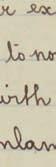 r ex
to no
with
nlaw